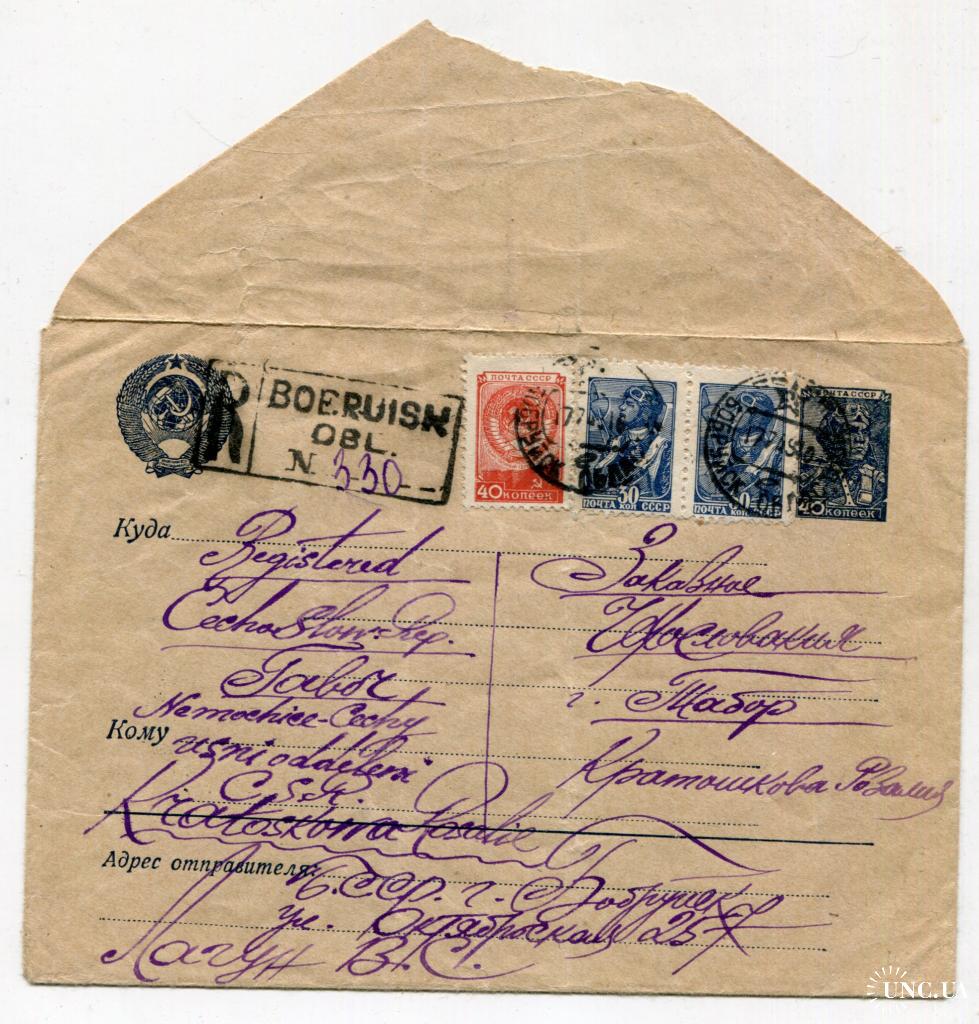 R
BOBRUISK
OBL.
N 330
ПОЧТА СССР
40 КОПЕЕК
30
ПОЧТА КОП СССР
ПОЧТА КОП СССР
ПОЧТА СССР
40 КОПЕЕК
Куда
Registered
Čechoslow-Rep.
Tabor
Nemochice-Cechy
usni oddeleni
Č.S.R.
Kratoskowa Rozalie
Заказное
Чехословакия
г. Табор
Кратошкова Розалия
Кому
Адрес отправителя:
БССР. г. Бобруйск
ул. Октябрьская 257
Лагун В.С.
UNC.UA